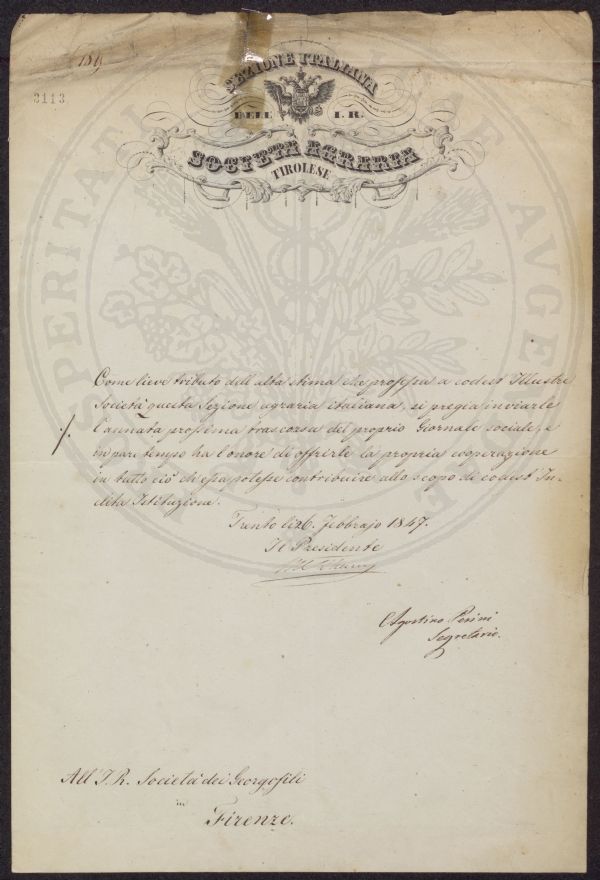 189
3113
SEZIONE ITALIANA
DELL' I. R.
SOCIETÀ AGRARIA
TIROLESE
PROSPERITATI AUGE
Come lieve tributo dell'alta stima che professa a codest'Illustre
Società questa Sezione agraria italiana, si pregia inviarle
l'annata prossima trascorsa del proprio Giornale sociale, e
in pari tempo ha l'onore di offrirle la propria cooperazione
in tutto ciò ch'essa potesse contribuire allo scopo di codest'In-
clita Istituzione.
Trento li 26. Febbrajo 1847.
Il Presidente
Agostino Perini
Segretario.
All'I. R. Società dei Georgofili
in
Firenze.